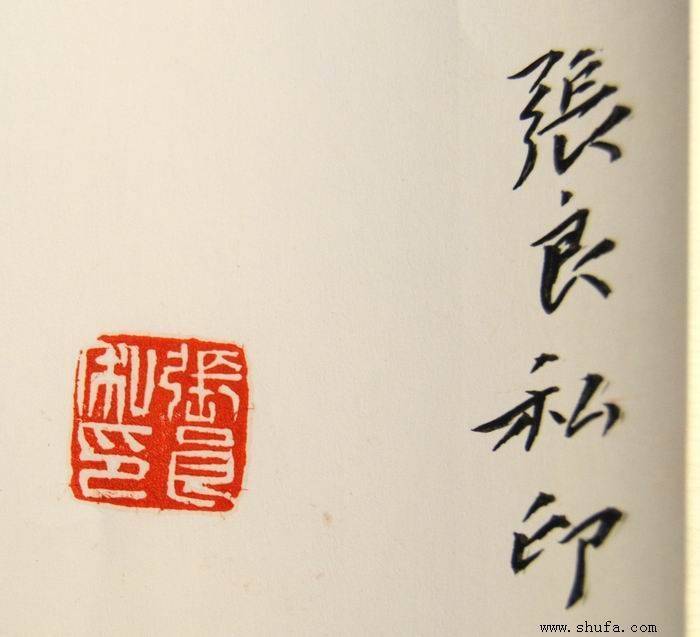 張良私印
張良私印
www.shufa.com